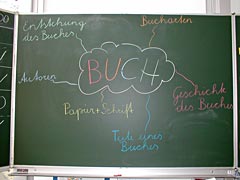 Entstehung
des Buches
Bucharten
Autoren
BUCH
Geschichte
des Buches
Papier + Schrift
Teile eines
Buches